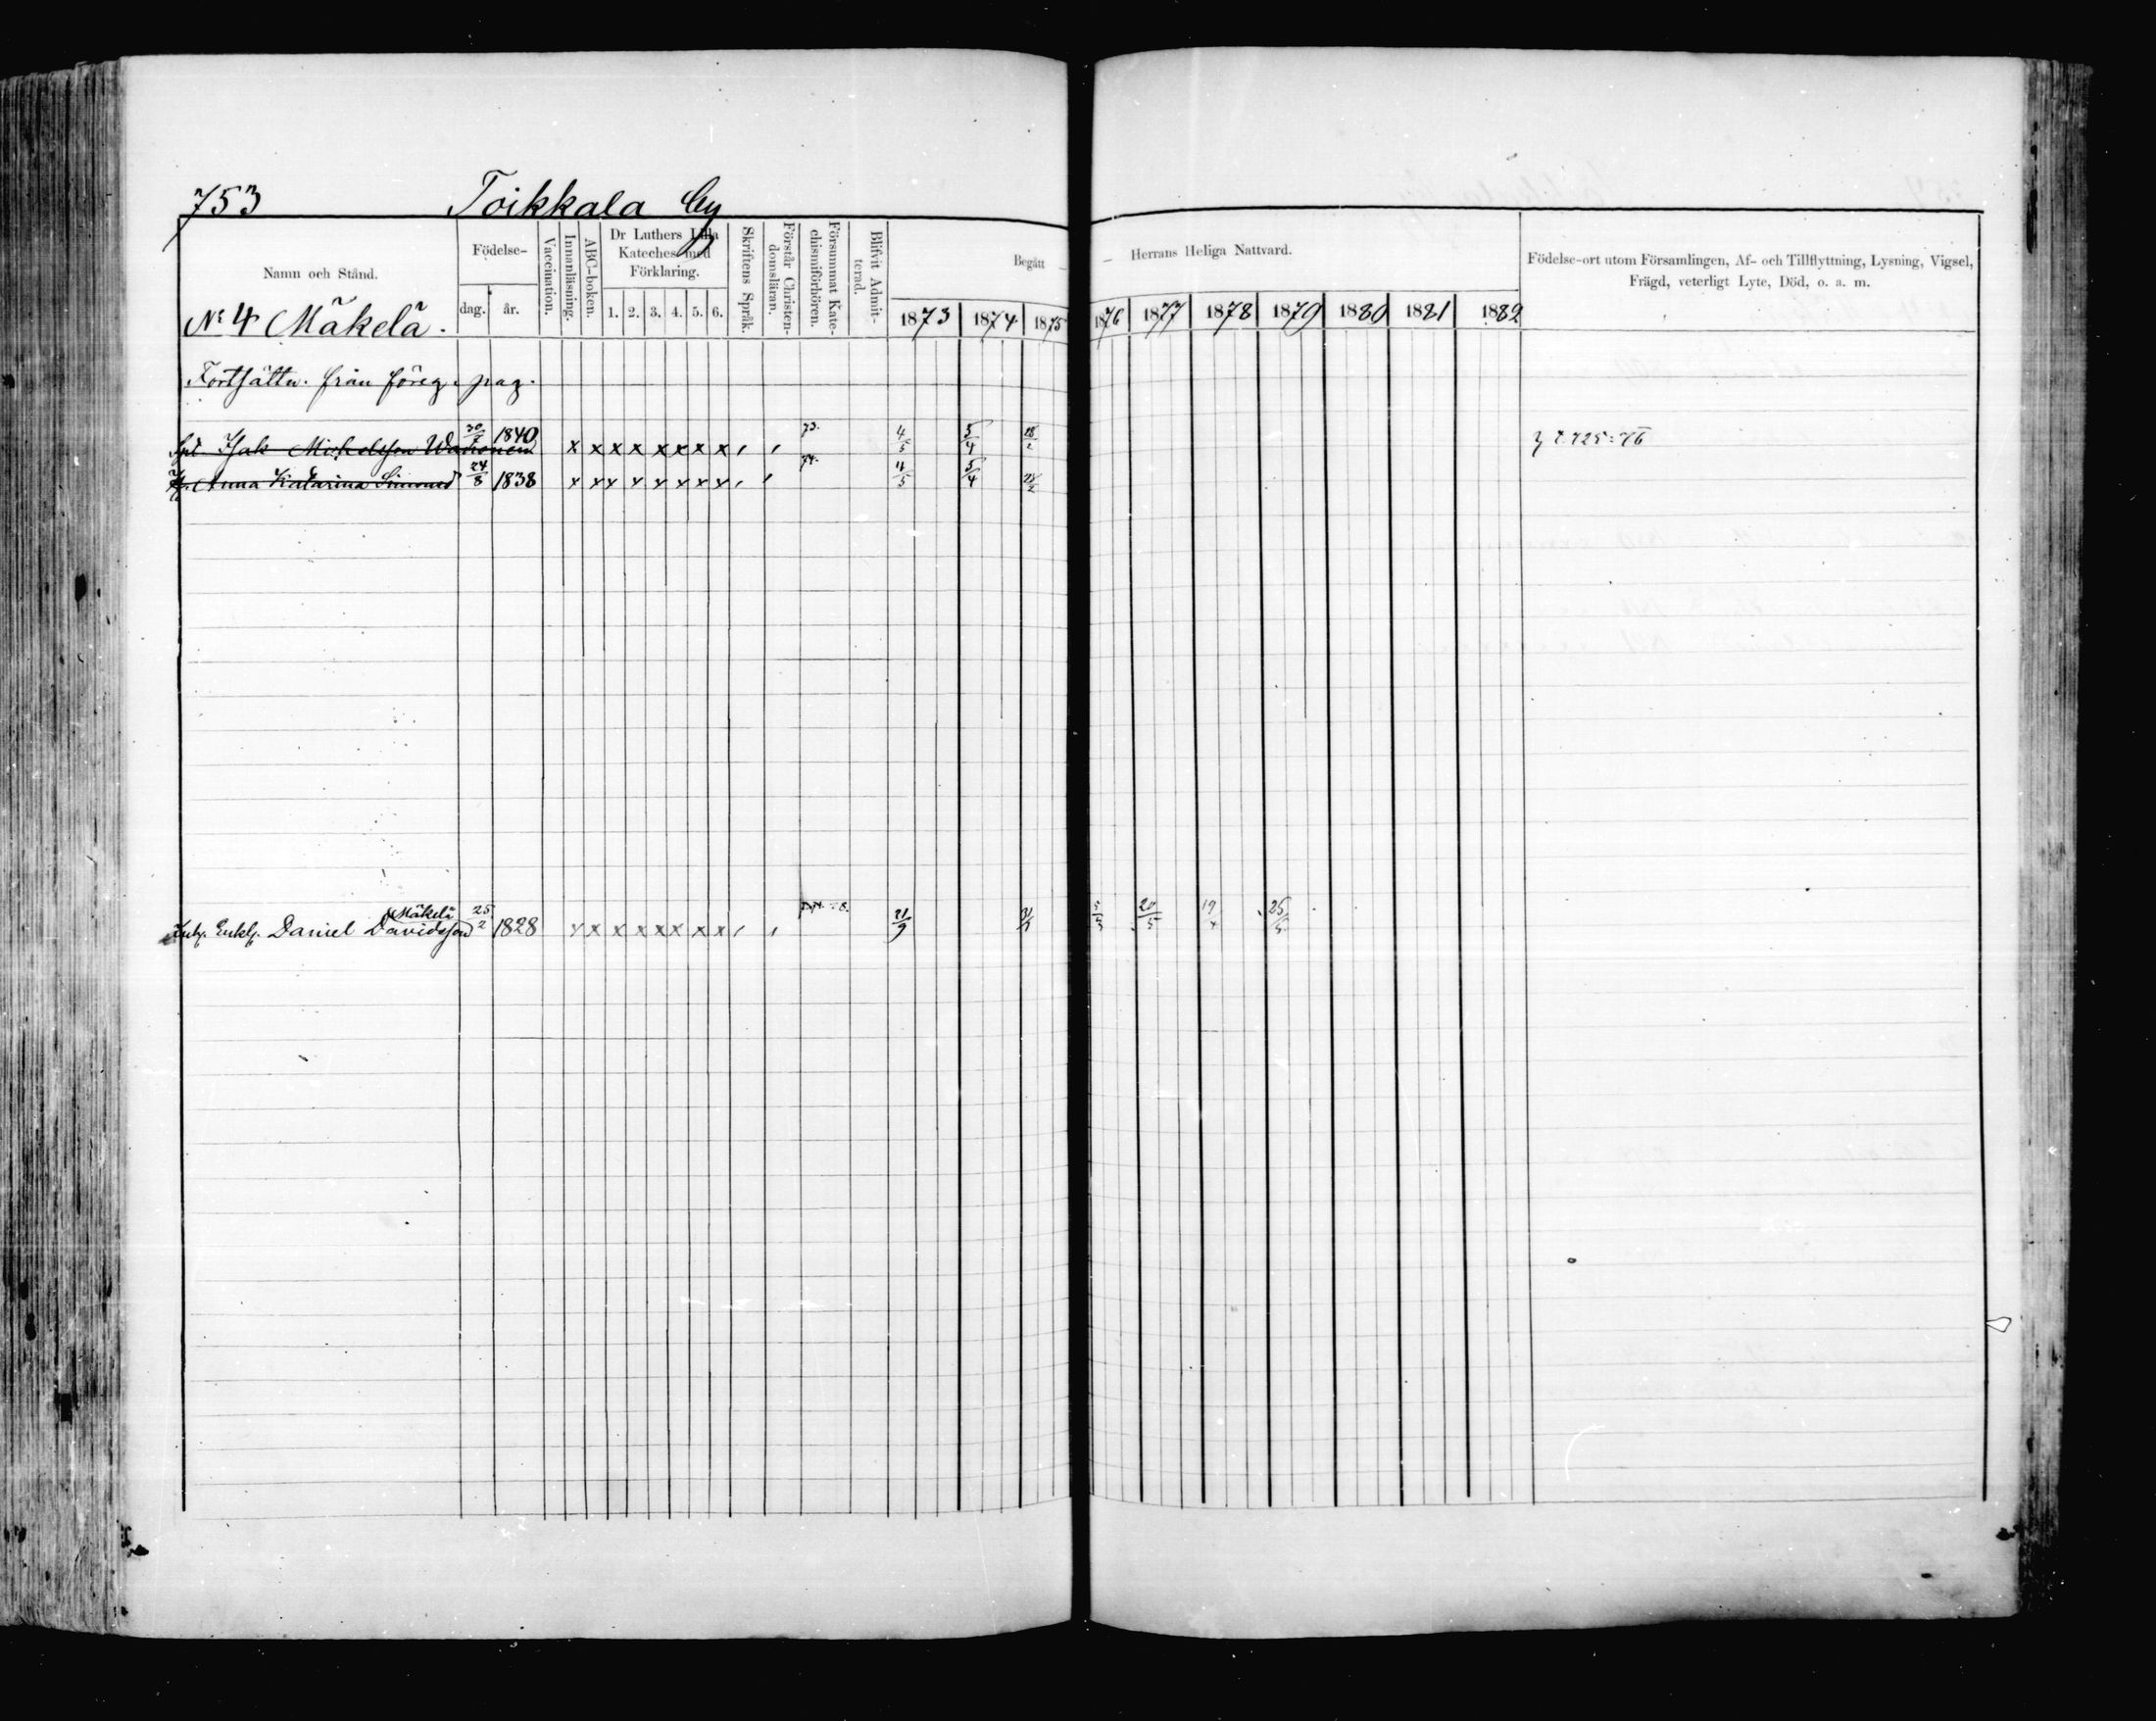 753 Toikkala by
Namn och Stånd.
Födelse-
dag. år.
Vaccination.
Innanläsning.
ABC-boken.
Dr Luthers Lilla
Kateches med
Förklaring.
1. 2. 3. 4. 5. 6.
Skriftens Språk.
Förstår Christen-
domsläran.
Försummat Kate-
chismiförhören.
Blifvit Admit-
terad.
Begått – – Herrans Heliga Nattvard.
1873 1874 1875 1876 1877 1878 1879 1880 1881 1882
Födelse-ort utom Församlingen, Af- och Tillflyttning, Lysning, Vigsel,
Frägd, veterligt Lyte, Död, o. a. m.
No 4 Mäkelä.
Fortsättn. från föreg. pag.
Isak Michelsson 1840 x x x x x x x x 73. 4/5 5/4 28/2
Anna Katarina Simonsd 24/8 1838 x x x x x x x x 74. 4/5 5/4 28/2
Mäkelä
Enkl. Daniel Davidsson 25/2 1828 x x x x x x x x 21/9 20/5 19/4 25/5